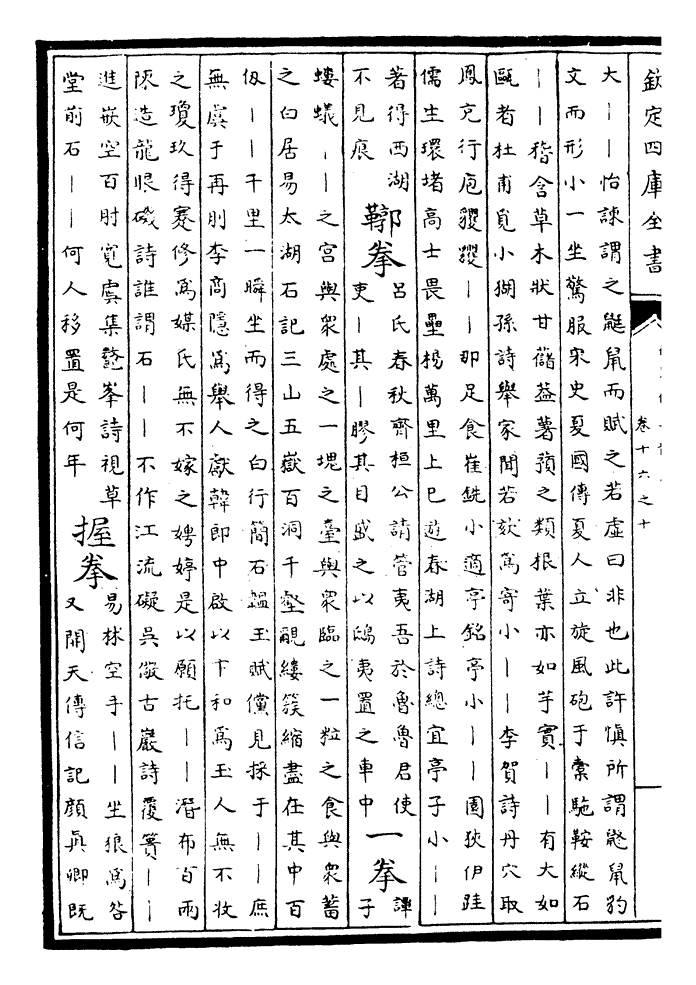 欽定四庫全書
卷十六之十
大——怡諫謂之鼮鼠而賦之若虛曰非也此許慎所謂鼮鼠豹
文而形小一坐驚服宋史夏國傳夏人立旋風砲于橐駞鞍縱石
——嵇含草木狀甘藷蓋薯蕷之類根葉亦如芋實——有大如
甌者杜甫覓小猢孫詩舉家聞若欬爲寄小——李賀詩丹穴取
鳳充行庖玃玃——那足食崔銑小適亭銘亭小——園狹伊跬
儒生環堵高士畏壘楊萬里上巳遊春湖上詩總宜亭子小——
著得西湖
不見痕
鞹拳
呂氏春秋齊桓公請管夷吾於魯魯君使
吏—其—膠其目盛之以鴟夷置之車中
一拳
譚
子
螻蟻——之宮與衆處之一塊之臺與衆臨之一粒之食與衆蓄
之白居易太湖石記三山五嶽百洞千壑覼縷簇縮盡在其中百
仭——千里一瞬坐而得之白行簡石韞玉賦儻見採于——庶
無虞于再刖李商隱爲舉人獻韓郎中啟以卞和爲玉人無不收
之瓊玖得蹇修爲媒氏無不嫁之娉婷是以願托——潛布百兩
陳造龍眼磯詩誰謂石——不作江流礙吳儆古巖詩覆簣——
進嵌空百肘寬虞集鼇峯詩視草
堂前石——何人移置是何年
握拳
易林空手——坐狼爲咎
又開天傳信記顔眞卿既